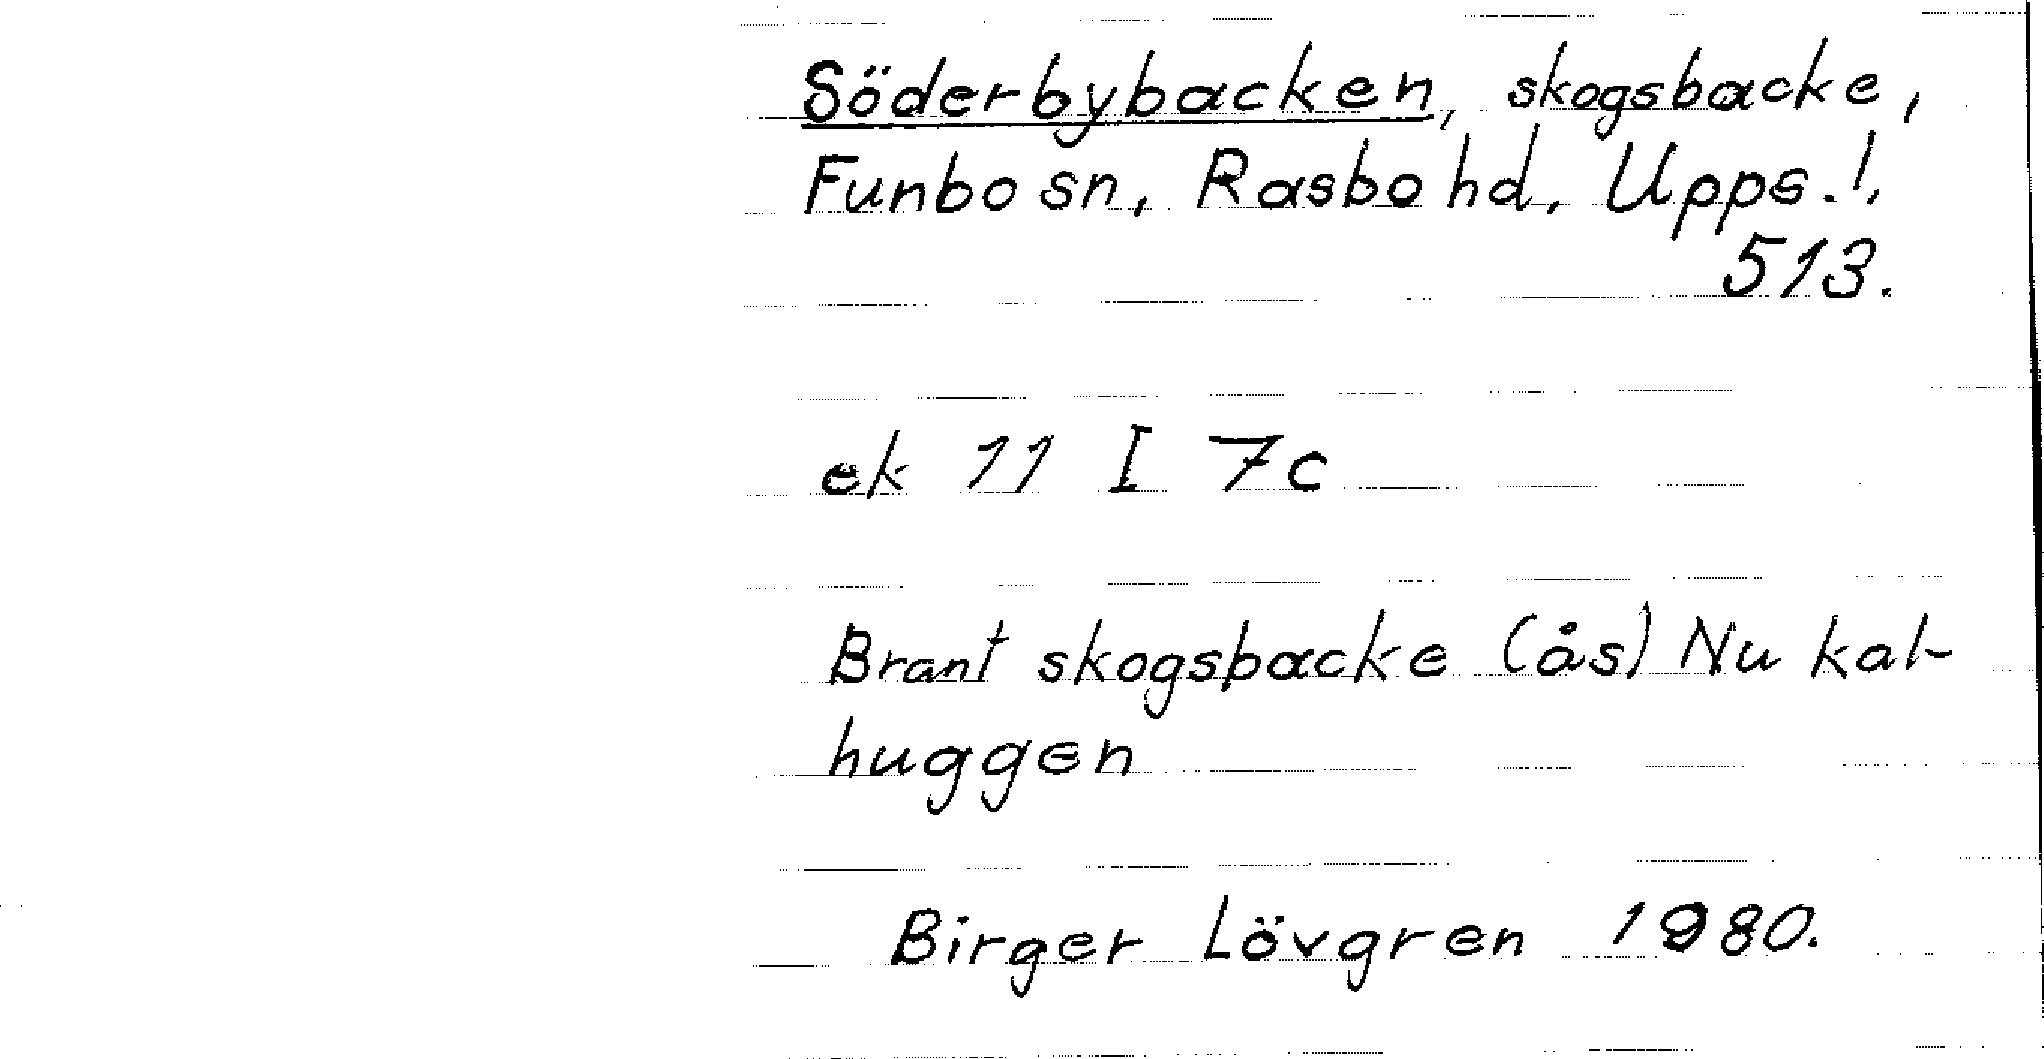 Söderbybacken, skogsbacke,
Funbo sn, Rasbo hd, Upps. l.
513.
ek 11 I 7c
Brant skogsbacke (ås) Nu kal-
huggen
Birger Lövgren 1980.